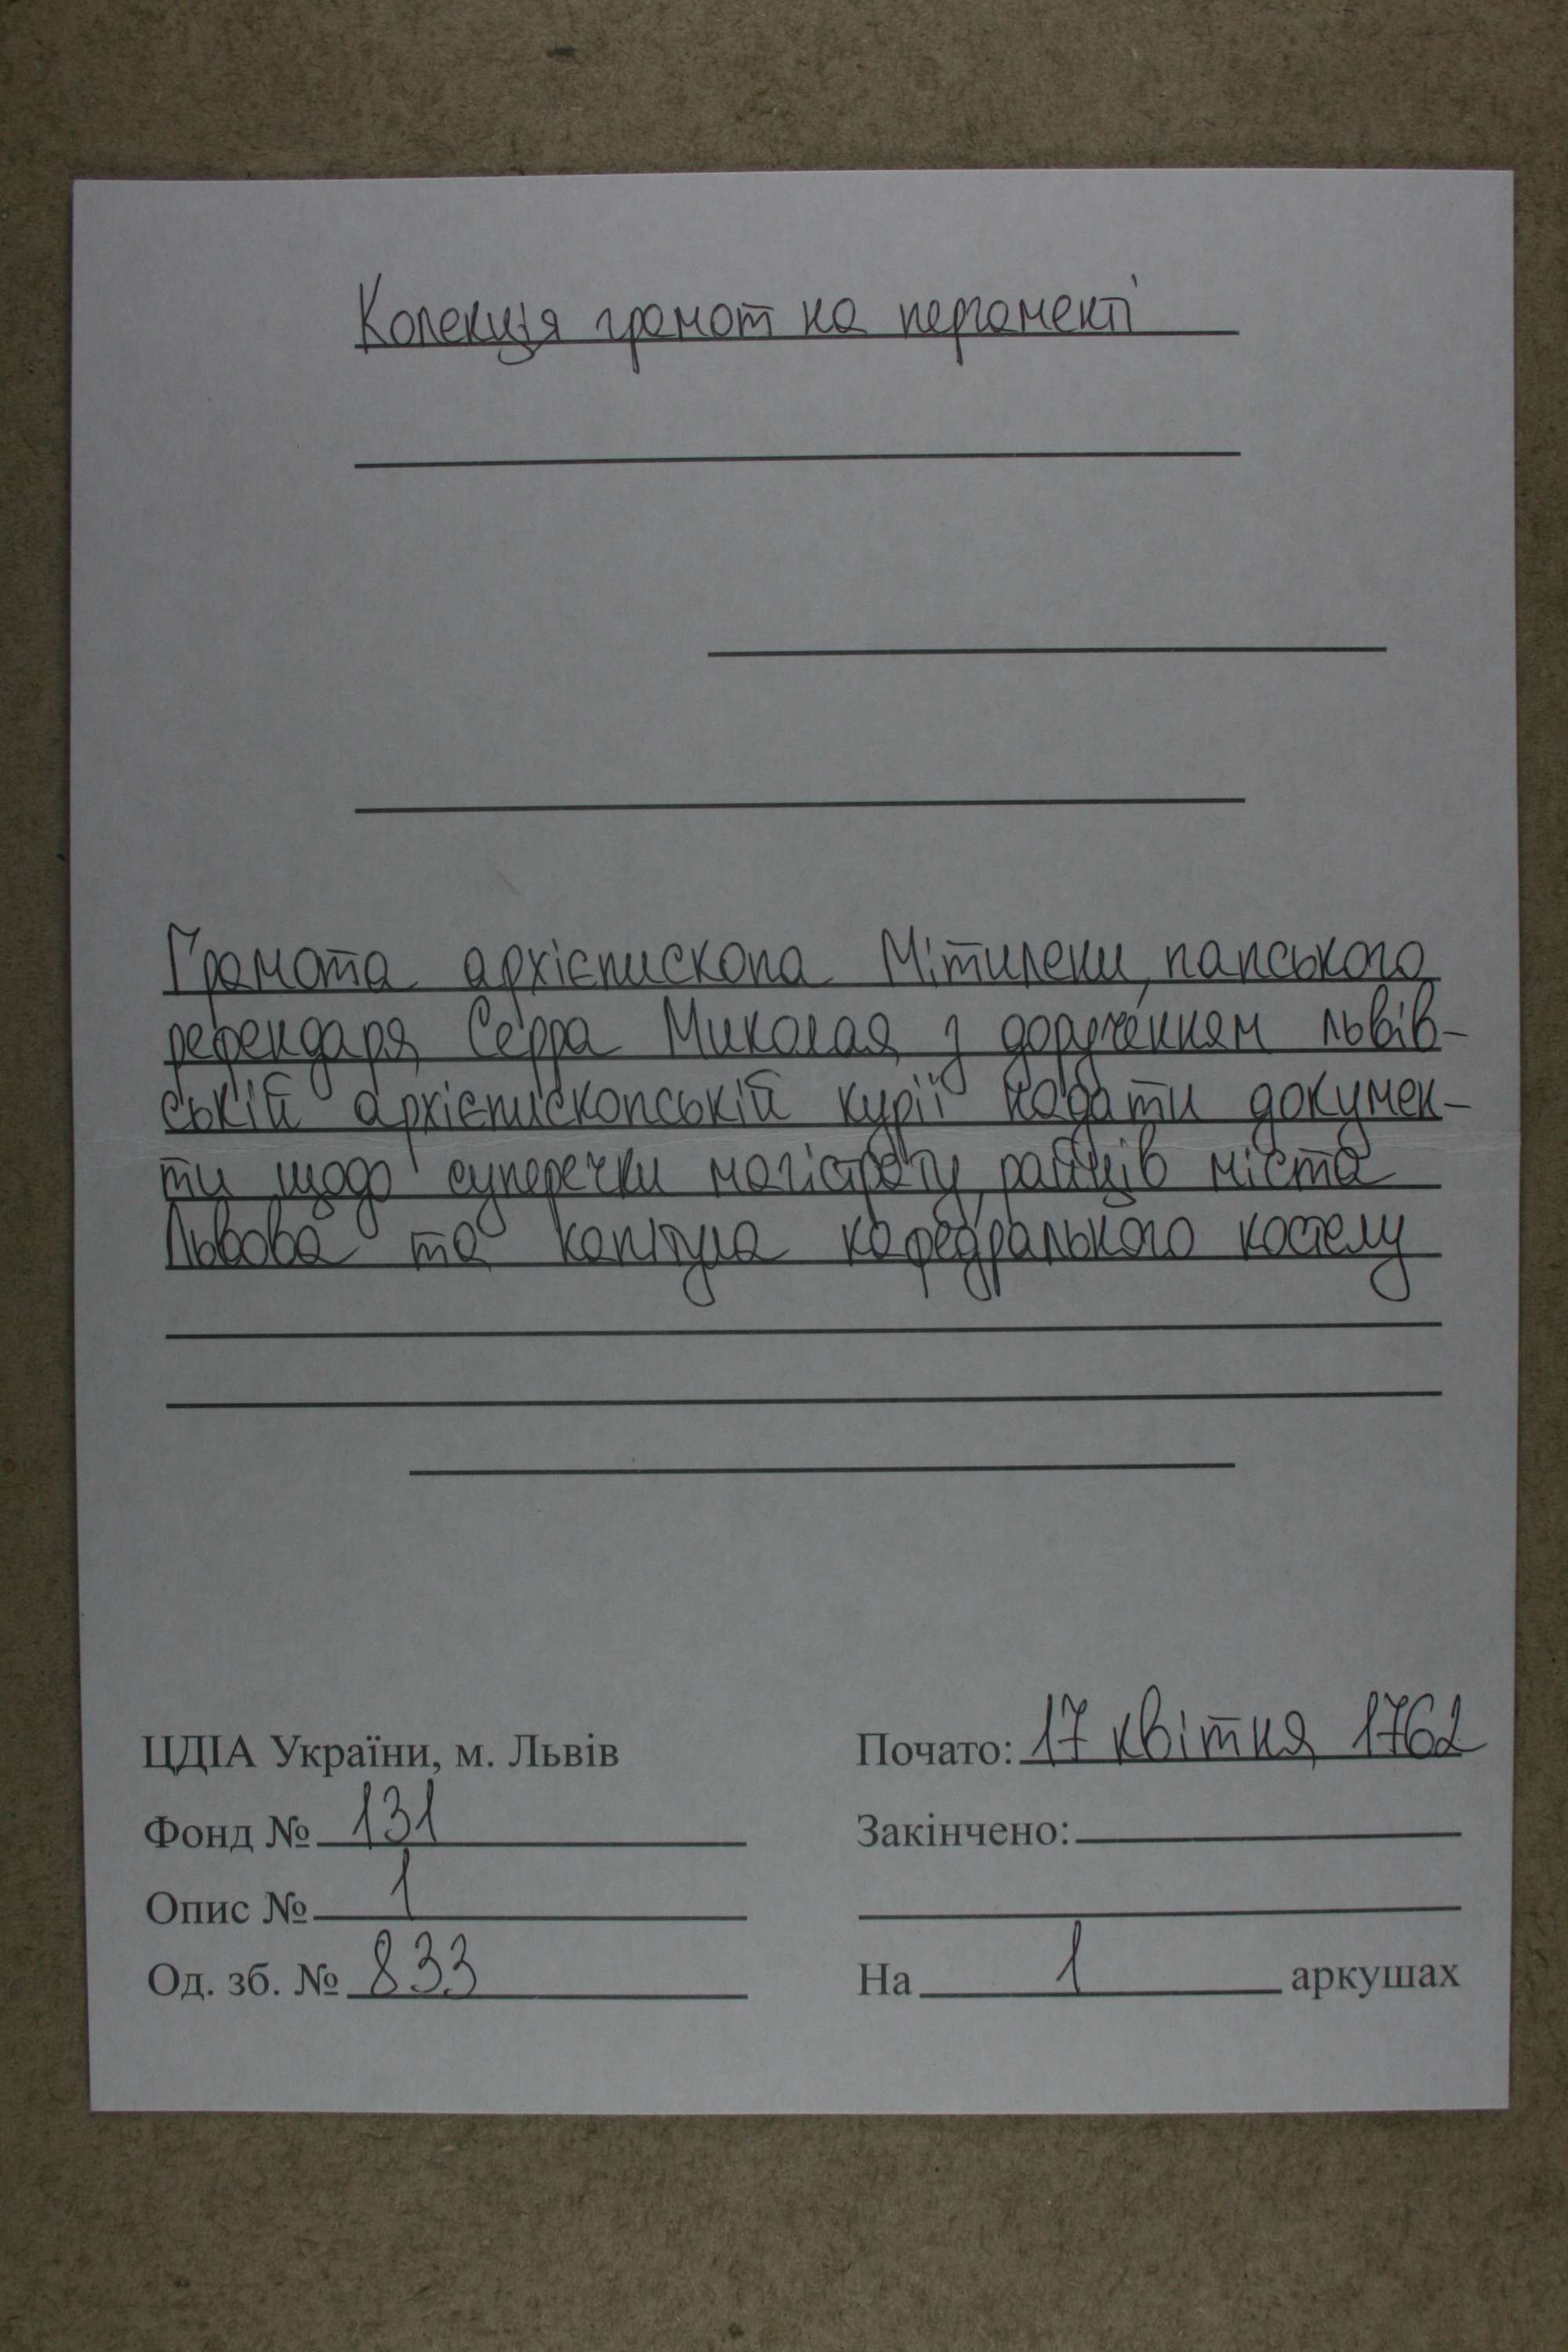 Колекція грамот на пергаменті
Грамота архієпископа Мітилени, папського
референдаря Серра Миколая з дорученням львів-
ській архієпископській курії надати докумен-
ти щодо суперечки магістрату, райців міста
Львова та капітула кафедрального костелу
ЦДІА України, м. Львів
Почато: 17 квітня 1762
Фонд № 131
Закінчено:
Опис № 1
Од. зб. № 833
На 1 аркушах